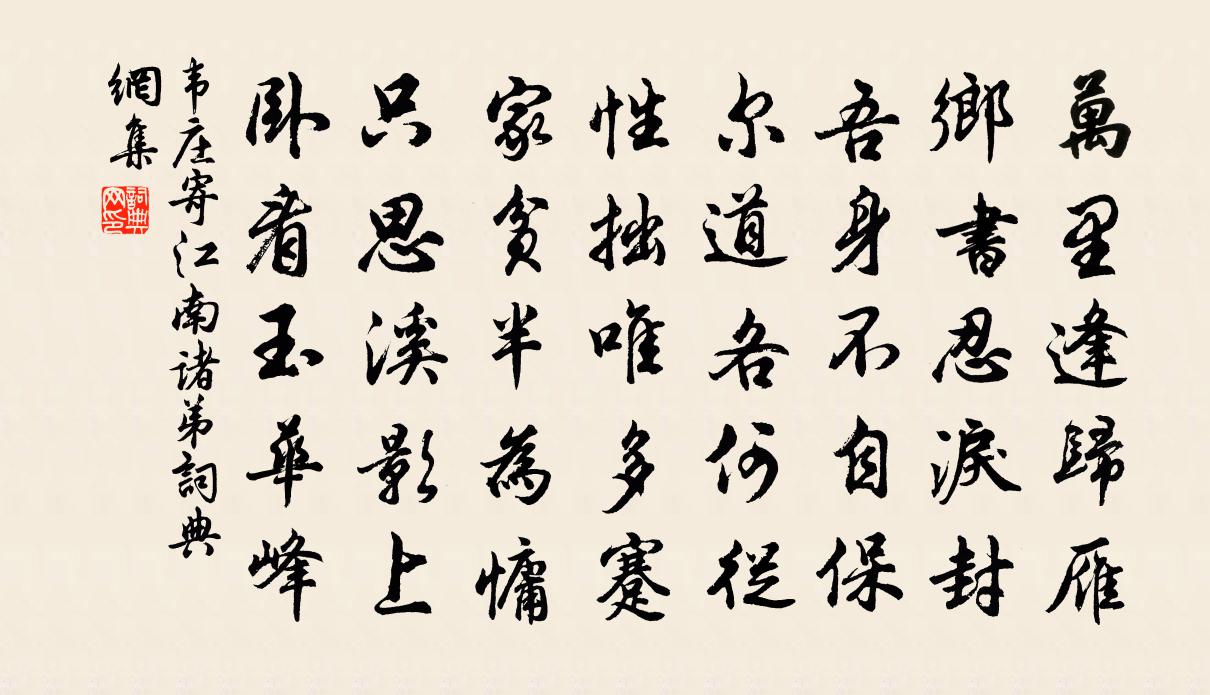 萬里逢歸雁
鄉書忍淚封
吾身不自保
尔道各何從
性拙唯多蹇
家貧半為慵
只思溪影上
卧看玉華峰
韦庄寄江南诸弟詞典
網集
詞典
网印